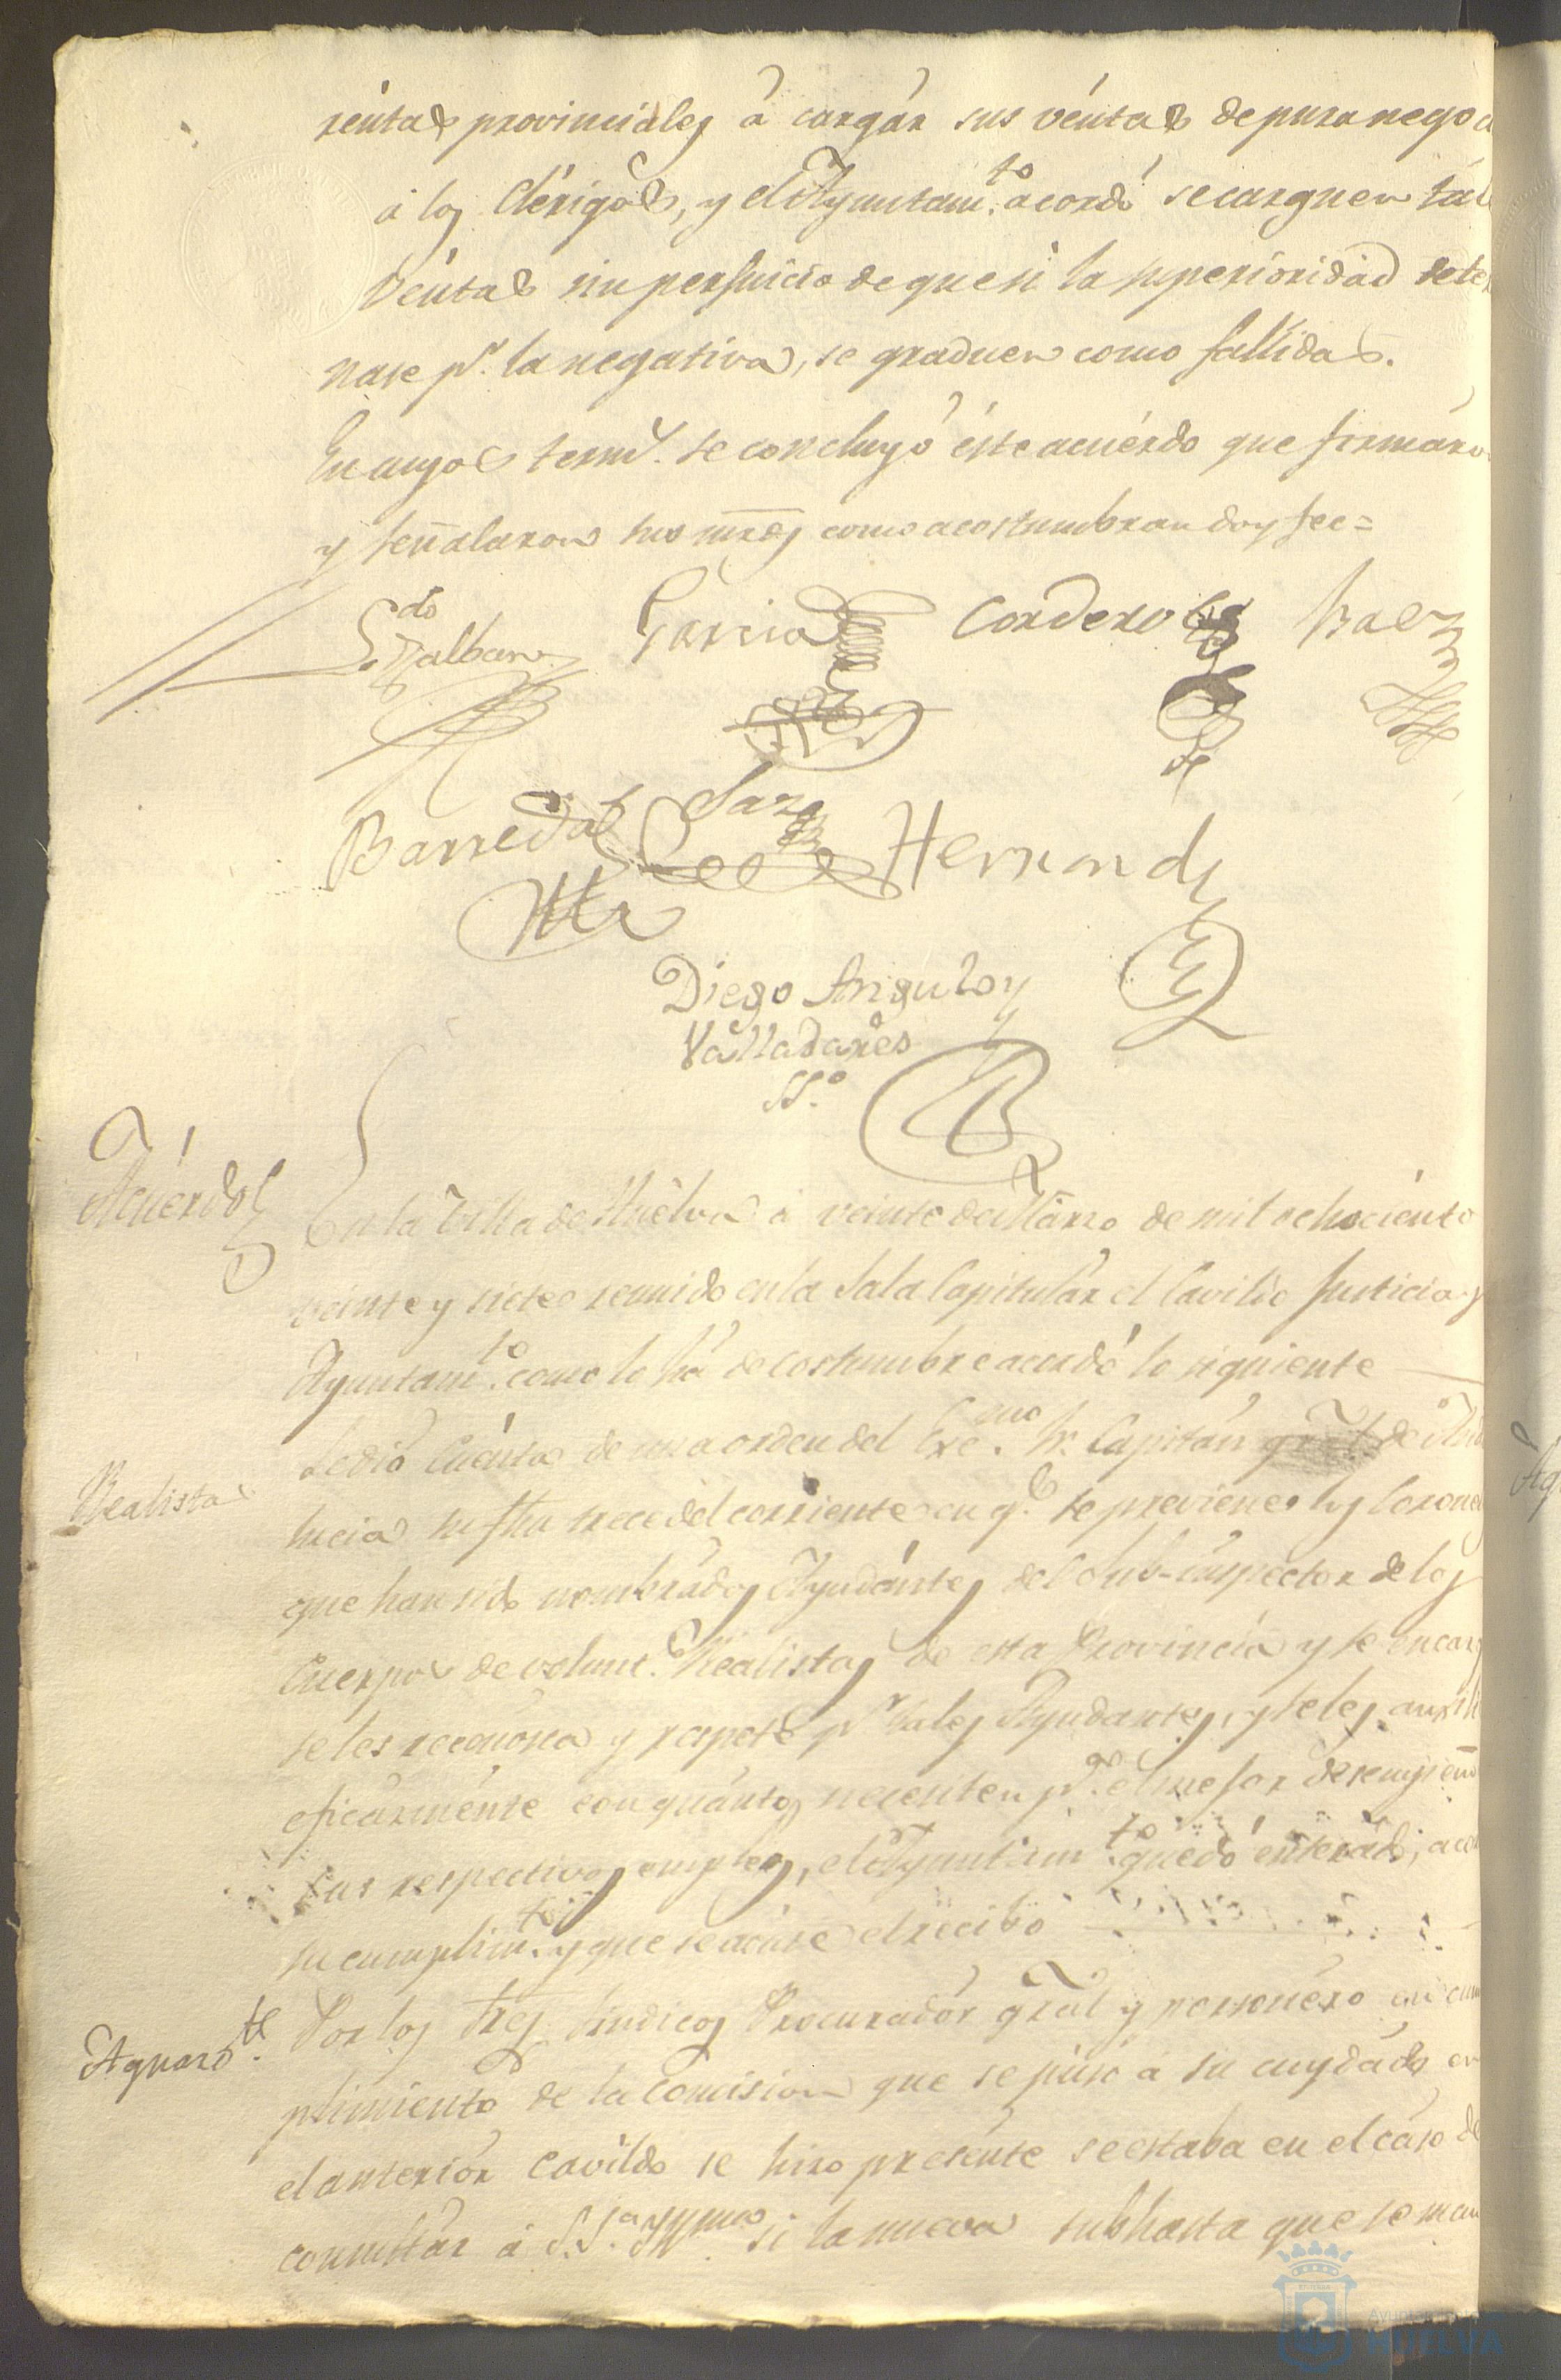 rentas provinciales á cargár sus véntas de pura nego
á los Clérigos, y el Ayuntam.to acordó se carguen tál
véntas sin perjuicio de que si la superioridad dete
nase pr. la negativa, se graduen como fallidas.
En cuyos term.s se concluyó éste acuérdo que firmáro
y señalaron sus mrds como acostumbran doy fee=
Ldo
Garcia Cordero Baez
Barreda Saz Hernandz
Diego Angulo y
Valladares
SSº
Acuérdo
En la Villa de Huelva á veinte de Márzo de mil ochociénto
veinte y siete reunido en la Sala Capitulár el Cavildo Justicia y
Ayuntam.to como lo há de costumbre acordó lo siguiente
Realistas
Se dió Cuénta de una orden del Exc.mo Sr. Capitán gral. de Anda
lucia su fha trece del corriente en q.e se previene los Corone
que han sido nombrádos Ayudántes del Sub-inspector de los
Cuerpos de volunt.s Realistas de esta Provincia y se encarg
se les reconosca y respete pr. tales Ayudantes, y se les auxili
eficazménte con quántos necesiten p.a el mejor desempeño
sus respectivos empleos, el Ayuntam.to quedó enterado, acor
su cumplim.to y que se acúse el recibo
Aguard.te
Por los Sres. Sindicos Procuradór grál y personéro en cum
plimiento de la Comision que se púso á su cuydádo en
el anteriór Cavildo se hizo presénte se estaba en el cáso de
consultár á S.S.a Yllma si la nueva subhasta que se man
Ayuntamiento de
HUELVA
Ag